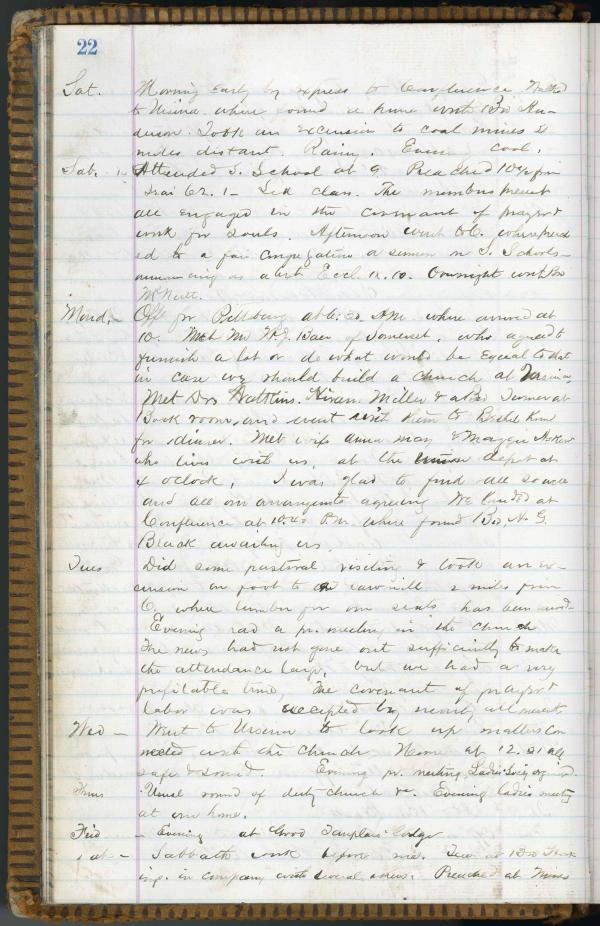 22
Sat. Morning early by express to Confluence. Walked
to Ursina where found a home with Bro An-
derson. Took an excursion to coal mines
miles distant. Rainy. Even cool.
Sab. Attended S. School at 9 Preached 10½ from
Isai 62. 1 - Led class. The members present
all engaged in the covenant of prayer &
work for souls. Afternoon went to C. where preach
ed to a fair congregation a sermon on S. Schools -
announcing as a text Eccl. 11. 10. Overnight with Bro
McNutt.
Mond, - Off for Pittsburg at 6:20 AM where arrived at
10. Met Mr W. J. Baer of Somerset, who agreed to
furnish a lot or do what would be equal to that
in case we should build a church at Ursina,
Met Drs Hiram Miller & at
Book room, and went with him to
for dinner. Met wife anna may & Maggie
who lives with us, at the union depot at
4 oclock, I was glad to find all
and all our arrangements agreeing. We landed at
Confluence at P.m. where found Bro, N. G.
Black awaiting us.
Tues Did some pastoral visiting & took an ex-
cursion on foot to saw mill 2 miles from
C. where lumber for our seats has been
Evening had a pr. meeting in the church
The news had not gone out sufficiently to make
the attendance large, but we had a very
profitable time, The covenant of prayer &
labor was accepted by nearly all present
Wed - Went to Ursina to look up matters con
nected with the church Home at 12. 31 all
safe & sound. Evening pr. meeting Ladies Sociey organized.
Thurs Usual round of duty church &c. Evening ladies meeting
at our home.
Frid - Evening at Good Templars lodge
Sat - Sabbath work before me. at Bro
in company with several others. Preached at